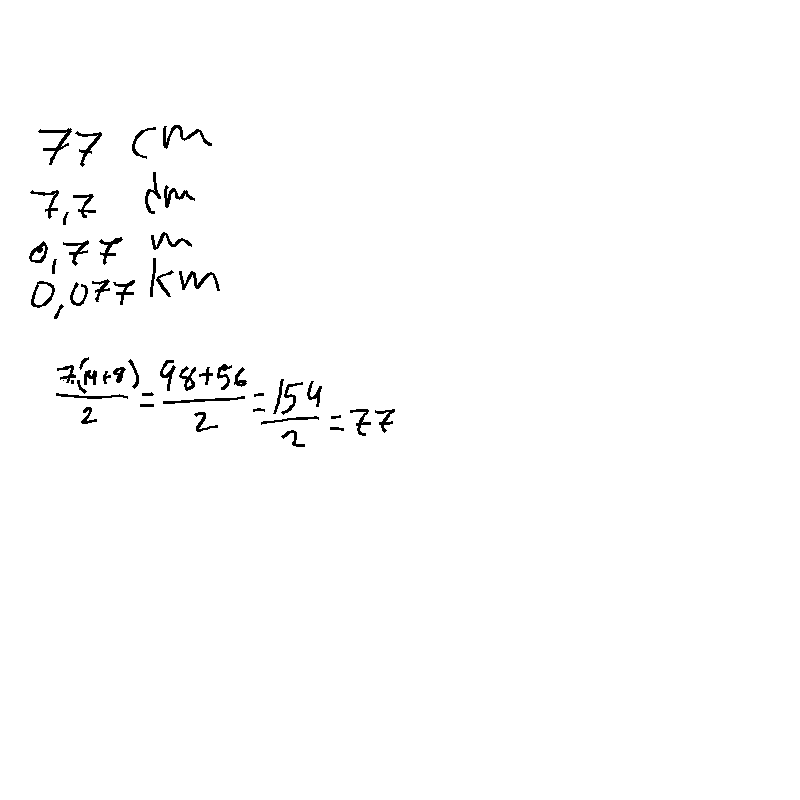 77 cm
7,7 dm
0,77 m
0,077 km
7(14+8)/2 = 98+56/2 = 154/2 = 77